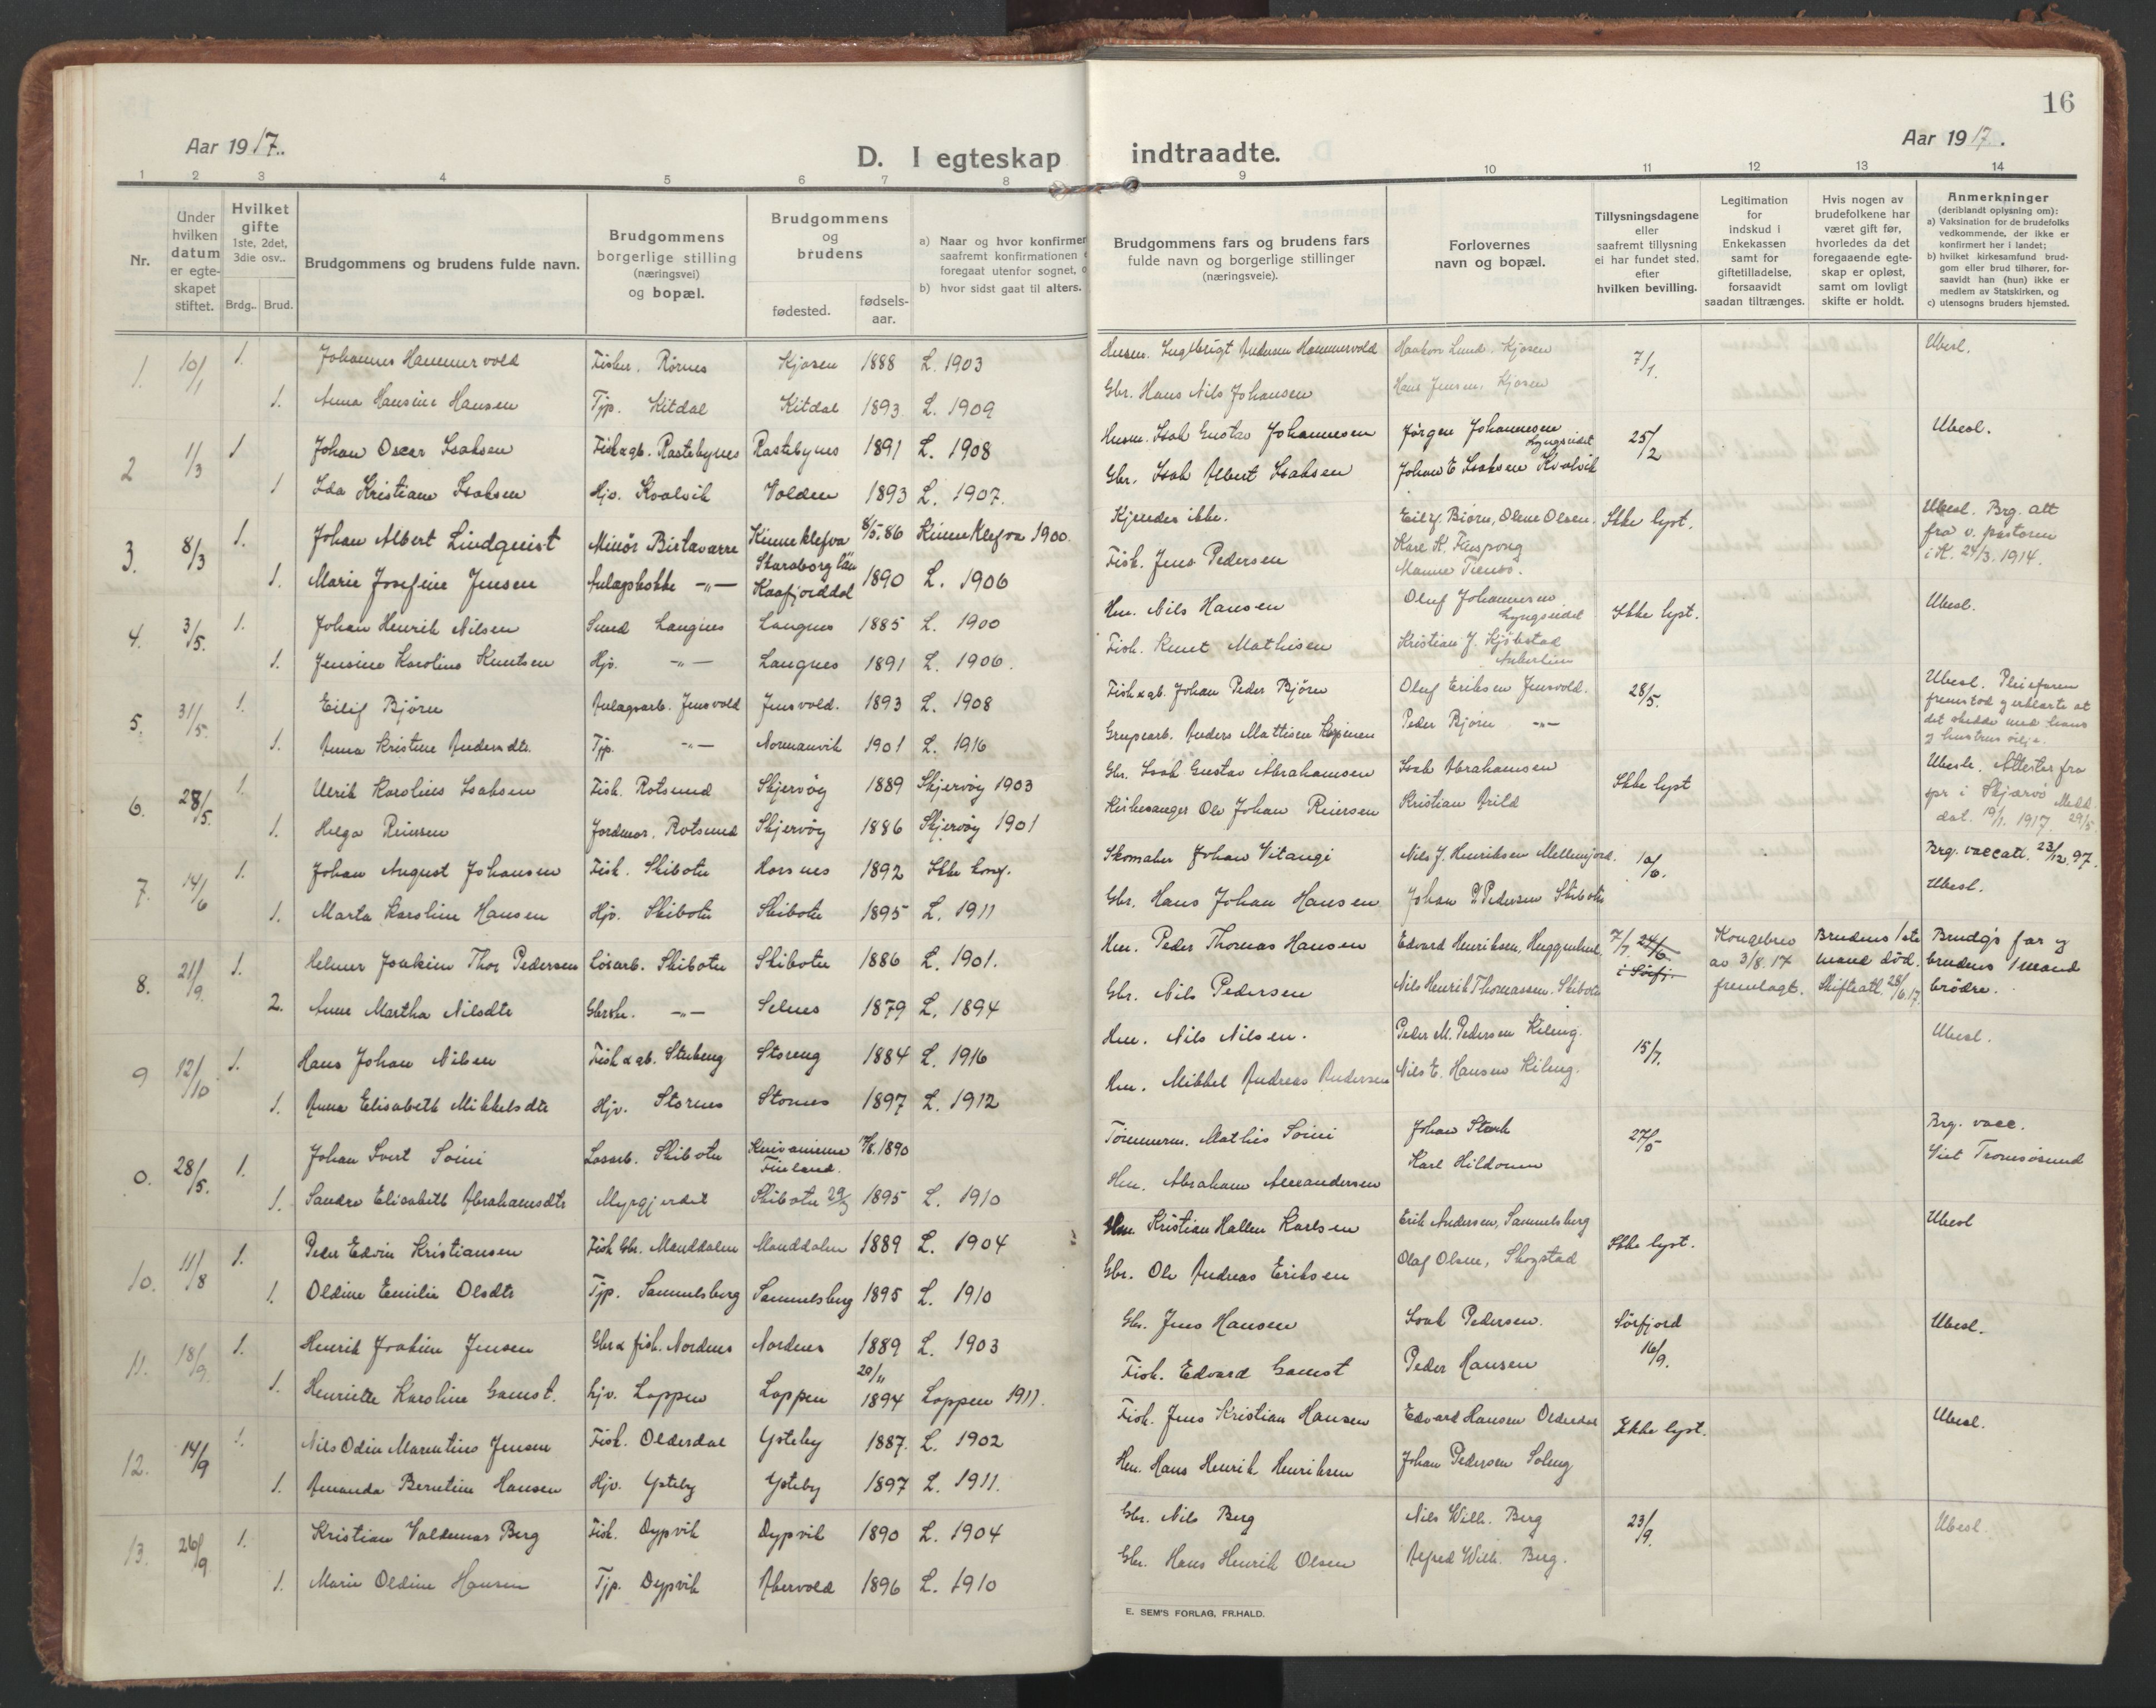 16
Aar 1917.
D. I egteskap indtraadte.
Aar 1917.
1 2 3 4 5 6 7 8 9 10 11 12 13 14
Nr.
Under hvilken datum er egteskapet stiftet.
Hvilket gifte 1ste, 2det, 3die osv..
Brdg.. Brud.
Brudgommens og brudens fulde navn.
Brudgommens borgerlige stilling (næringsvei) og bopæl.
Brudgommens og brudens
fødested.
fødsels-aar.
a) Naar og hvor konfirmer
saafremt konfirmationen e
foregaat utenfor sognet, o
b) hvor sidst gaat til alters.
Brudgommens fars og brudens fars
fulde navn og borgerlige stillinger
(næringsveie).
Forlovernes
navn og bopæl.
Tillysningsdagene
eller
saafremt tillysning
ei har fundet sted,
efter
hvilken bevilling.
Legitimation
for
indskud i
Enkekassen
samt for
giftetilladelse,
forsaavidt
saadan tiltrænges.
Hvis nogen av
brudefolkene har
været gift før,
hvorledes da det
foregaaende egte-
skap er opløst,
samt om lovligt
skifte er holdt.
Anmerkninger
(deriblandt oplysning om):
a) Vaksination for de brudefolks
vedkommende, der ikke er
konfirmert her i landet;
b) hvilket kirkesamfund brud-
gom eller brud tilhører, for-
saavidt han (hun) ikke er
medlem av Statskirken, og
c) utensogns bruders hjemsted.
1. 10/1 1. Johannes Hammervold Fisker. Rørnes Kjosen 1888 L. 1903 Engebrigt Andersen Hammervold Haakon Lund. Kjosen 7/1. Ubesl.
1. Anna Hansine Hansen Tjp. Kitdal Kitdal 1893 L. 1909 Gbr. Hans Nils Johansen Hans Jensen, Kjosen
2 1/3 1 Johan Oscar Isaksen Fisk & gb. Rastebynes Rastebynes 1891 L. 1908 Husm. Isak Gustav Johannesen Jørgen Johannesen Lyngseidet 25/2 Ubesl.
1 Ida Kristiane Isaksen Hjv. Kvalvik Volden 1893 L. 1907. Gbr. Isak Albert Isaksen Johan E Isaksen Kvalvik
3. 8/3 1. Johan Albert Lindqvist Minør Bistavarre Kinneklefva Skaraborg län 8/5.86 Kinneklefva 1900. Kjendes ikke. Eilif Biörn, Olene Olsen. Ikke lyst. Ubesl. Brg. att fra v. pastoren i K. 24/3. 1914.
1. Marie Josefine Jensen Anlægskokke -"- Kaafjorddal 1890 L. 1906 Fisk. Jens Pedersen
4. 3/5. 1. Johan Henrik Nilsen Smed Langnes Langnes 1885 L. 1900 Hm. Nils Hansen Oluf Johannesen Lyngseidet Ikke lyst. Ubesl.
1. Jensine Karoline Knutsen Hjv. -"- Langnes 1891 L. 1906. Fisk. Knut Mathisen
5. 31/5. 1. Eilif Bjørn Anlægsarb. Jensvold Jensvold. 1893 L. 1908 Fisk & gb. Johan Peder Bjørn Oluf Eriksen Jensvold. 28/5. Ubesl.
1. Anna Kristine Andersdtr. Tjp. -"- Normanvik 1901 L. 1916 Grupearb. Anders Mattisen Peder Bjørn -"-
6. 28/5. 1. Ulrik Karolius Isaksen Fisk. Rotsund Skjervøy 1889 Skjervøy 1903 Gbr. Isak Gustav Abrahamsen Isak Abrahamsen Ikke lyst Ubesl. Attester fra spr i Skjærvö dat. 19/1. 1917. Meld. 29/5.
1. Helga Reiersen Jordmor. Rotsund Skjervøy 1886 Skjervøy 1901 Kirkesanger Ole Johan Reiersen Kristian Arild
7. 14/6 1. Johan August Johansen Fisk. Skibotn Horsnes 1892 Ikke konf. Skomaker Johan Vitangi Nils J. Henriksen 10/6. Brg. vaccatt. 23/12.97.
1. Marta Karoline Hansen Hjv. Skibotn Skibotn 1895 L. 1911 Gbr. Hans Johan Hansen Johan P. Pedersen Skibotn Ubesl.
8. 21/9. 1. Helmer Joakim Thor Pedersen Løsarb. Skibotn Skibotn 1886 L. 1901. Hm. Peder Thomas Hansen Edvard Henriksen, 7/7. 24/6. i Sörfj. Kongebrev av 3/8. 17 fremlagt. Brudens 1ste mand död. Skifteatt. 28/6.17. Brudg's far og brudens 1 mand brödre.
2. Anne Martha Nilsdtr -"- Selnes 1879 L. 1894 Gbr. Nils Pedersen Nils Henrik Thomassen. Skibotn
9 12/10 1. Hans Johan Nilsen Fisk & gb. Storeng 1884 L. 1916 Hm. Nils Nilsen. Peder M. Pedersen Kileng. 15/7. Ubesl.
1. Anna Elisabeth Mikkelsdtr Hjv. Stornes Stornes 1897 L. 1912 Hm. Mikkel Andreas Andersen Nils E. Hansen Kileng.
0. 28/5. 1. Johan Ivert Soini Løsarb. Skibotn Finland. 1890 Tömmerm. Mathis Soini Johan Stark 27/5 Brg. vacc.
1. Sandra Elisabeth Abrahamsdtr Myrgjerdet Skibotn 29/3 1895 L. 1910 Hm. Abraham Alexandersen Karl Hildonen Viet Tromsösund
10. 11/8 1. Peder Edvin Kristiansen Fisk Gbr. Manddalen Manddalen 1889 L. 1904 Hm. Kristian Hallen Karlsen Erik Andersen, Samuelsberg Ikke lyst. Ubesl
1. Oldine Emilie Olsdtr Tjp. Samuelsberg Samuelsberg 1895 L. 1910 Gbr. Ole Andreas Eriksen Olaf Olsen, Skogstad
11. 18/9. 1. Henrik Joakim Jensen Gbr & fisk. Nordnes Nordnes 1889 L. 1903 Gbr. Jens Hansen Isak Pedersen. Sörfjord 16/9. Ubesl.
1. Henriette Karoline Gamst. Hjv. Loppen Loppen 20/11 1894 Loppen 1911. Fisk. Edvard Gamst Peder Hansen
12. 14/9 1. Nils Odin Marentius Jensen Fisk. Olderdal Ysteby 1887. L. 1902 Fisk. Jens Kristian Hansen Edvard Hansen Olderdal Ikke lyst. Ubesl.
1. Amanda Berntine Hansen Hjv. Ysteby Ysteby 1897 L. 1911. Hm. Hans Henrik Henriksen Johan Pedersen Soleng
13. 26/9 1. Kristian Valdemar Berg Fisk. Dypvik Dypvik 1890 L. 1904 Gbr. Nils Berg Nils Wilh. Berg 23/9. Ubesl.
1. Marie Oldine Hansen Tjp. Dypvik Akervold 1896 L. 1910 Gbr. Hans Henrik Olsen Alfred Wilh. Berg.
E. SEM'S FORLAG, FR.HALD.